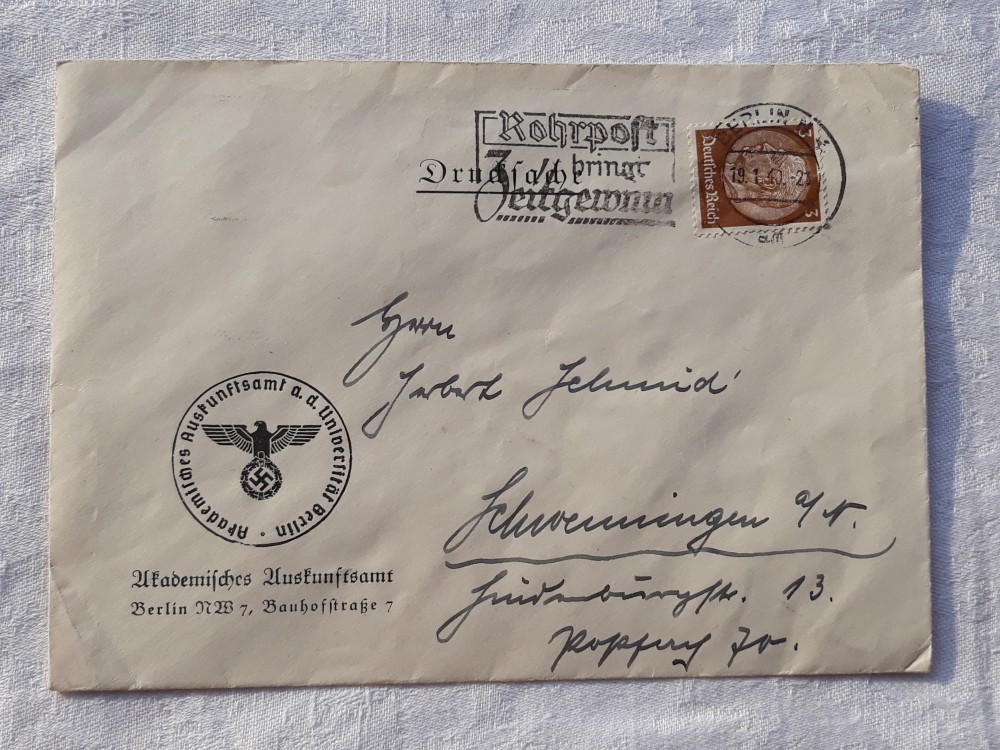 Rohrpost
bringt
Zeitgewinn
Drucksache
BERLIN
19.1.40
am
Deutsches Reich
3
3
Herrn
Herbert Schmid
Schwenningen a/N.
Hindenburgstr. 13.
Postfach 70.
Akademisches Auskunftsamt a.d. Universität Berlin
Akademisches Auskunftsamt
Berlin NW 7, Bauhofstraße 7